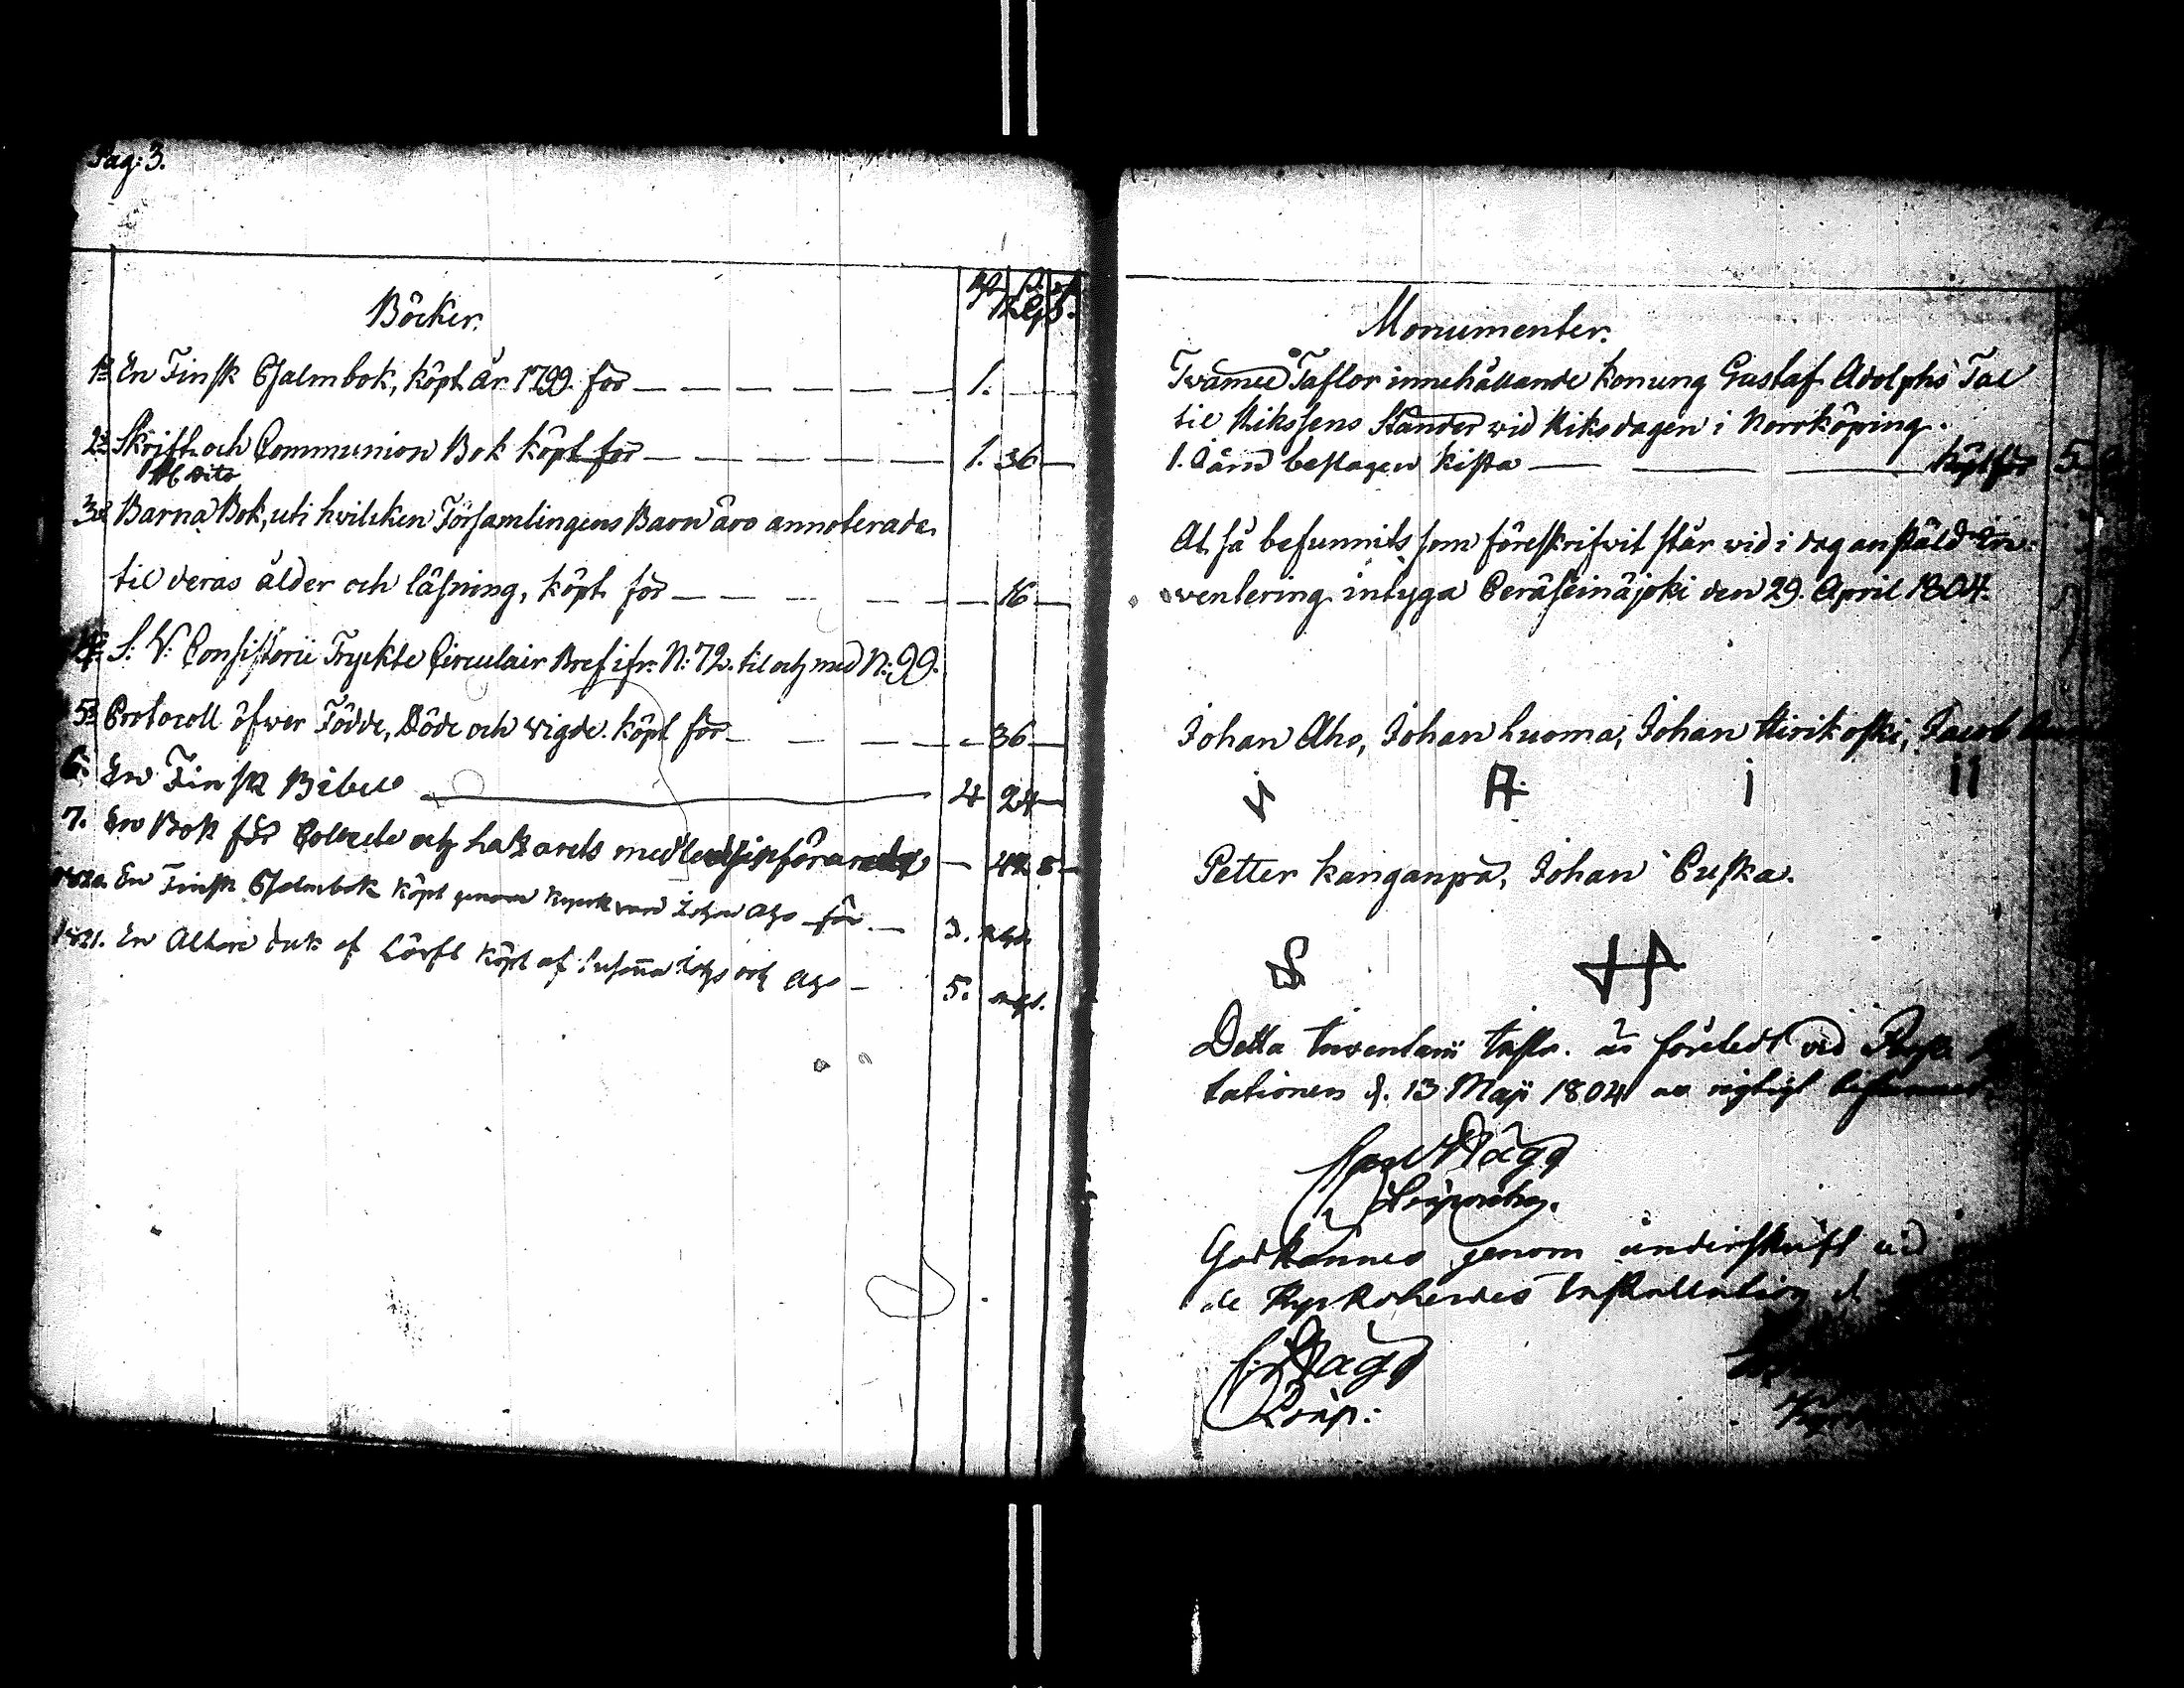 Pag: 3.
Böcker.
1:o En Finsk Psalmbok, köpt År 1799. för — 1.
2:o Skrift- och Communion Bok köpt för — 1. 36
3:o Barna Bok, uti hvilcken Församlingens Barn äro annoterade
til deras ålder och läsning, köpt för — 16
4:o S: V: Consistorii Tryckte Circulair Bref ifr: N: 72. til och med N: 99.
5:o Protocoll öfwer Födde, Döde och vigde. köpt för — 36
6. En Finsk Bibel — 4 24
7. En Bok för Collecte och — 42 8
1820. En Finsk Psalmbok köpt genom Johan Aho för. — 3.
1821. En Altare duk af Lärft köpt af och Aho — 5.
Monumenter.
Tvänne Taflor innehållande Konung Gustaf Adolphs Tal
til Riksens Ständer wid Riksdagen i Norrköping.
1. Järn beslagen Kista — köpt för 5
At så befunnits som föreskrifwit står wid i dag anstäld In-
wentering intyga Peräseinäjoki den 29. April 1804.
Johan Aho, Johan Luoma, Johan Hirikoski, Jacob
A i ii
Petter Kanganpä, Johan Puska.
Detta Inventarii är företedt vid
tationen d. 13 Maji 1804 rigtigt
Hägg
Godkännes genom underskrift vid
de Kyrkoherdes Installation d
Hägg